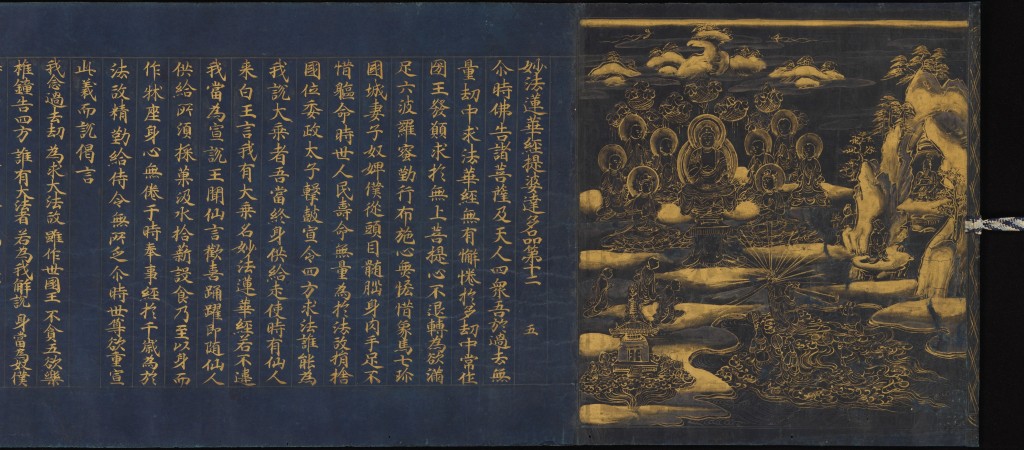 妙法蓮華經提婆達多品第十二　五
尒時佛告諸菩薩及天人四衆吾於過去無
量劫中求法華經無有懈惓於多劫中常作
國王發願求於無上菩提心不退轉為欲滿
足六波羅蜜勤行布施心無悋惜象馬七珎
國城妻子奴婢僕從頭目髓腦身肉手足不
惜軀命時世人民壽命無量為於法故捐捨
國位委政太子擊皷宣令四方求法誰能為
我說大乘者吾當終身供給走使時有仙人
来白王言我有大乘名妙法蓮華經若不違
我當為宣說王聞仙言歡喜踊躍即随仙人
供給所須採菓汲水拾薪設食乃至以身而
作牀座身心無倦于時奉事經於千歲為於
法故精勤給侍令無所乏尒時世尊欲重宣
此義而說偈言
我念過去劫 為求大法故 雖作世國王 不貪五欲樂
椎鐘告四方 誰有大法者 若為我解說 身當為奴僕